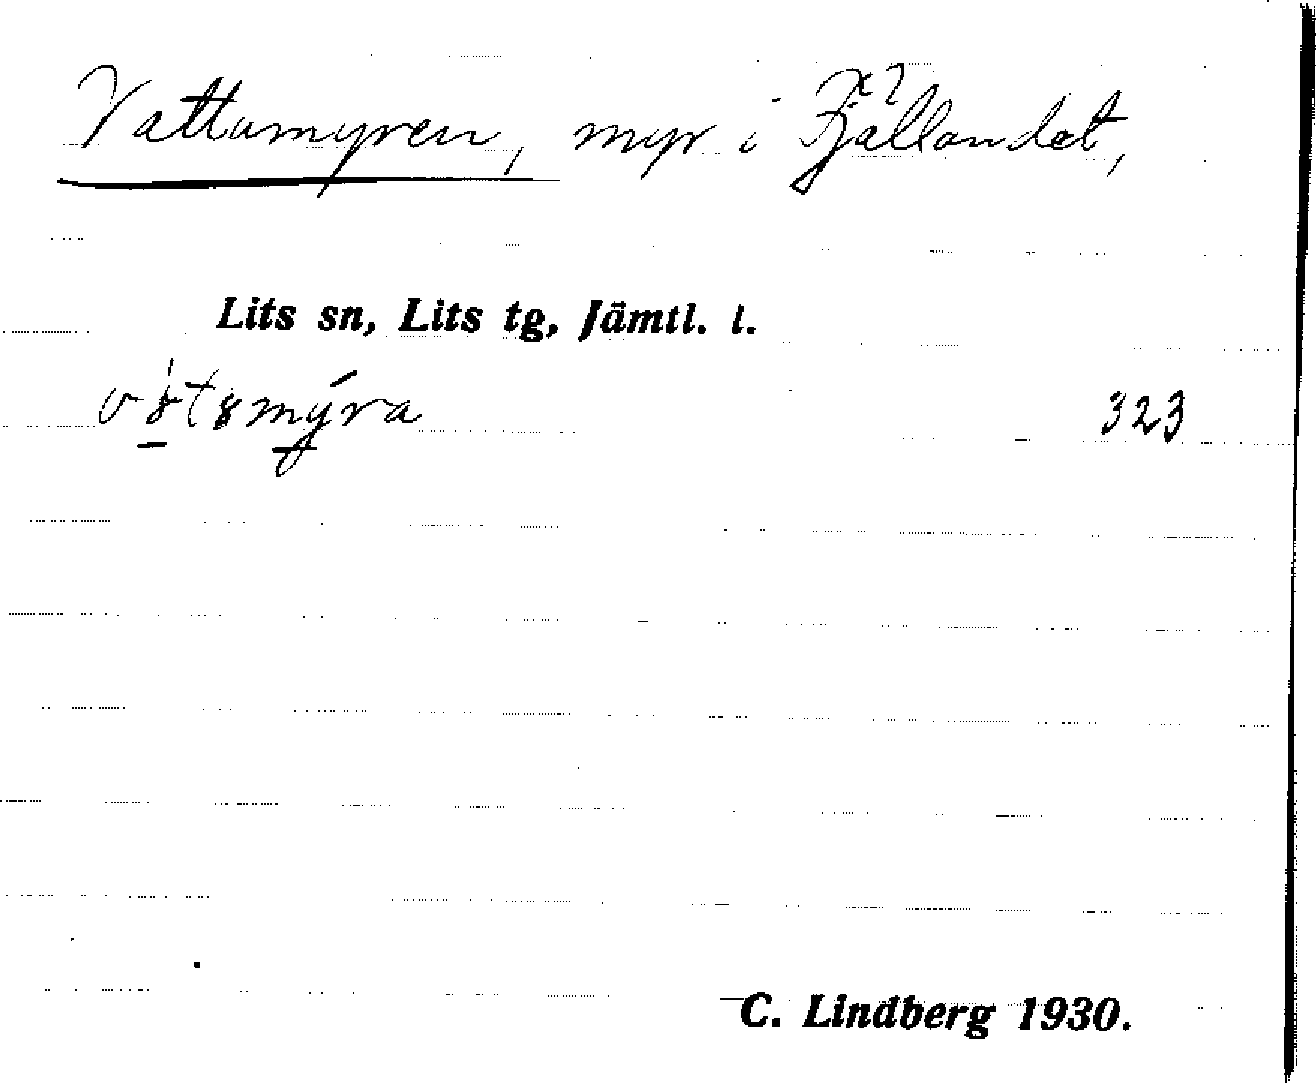 Vattumyren, myr i Fjällandet,
Lits sn, Lits tg, Jämtl. l.
323
C. Lindberg 1930.